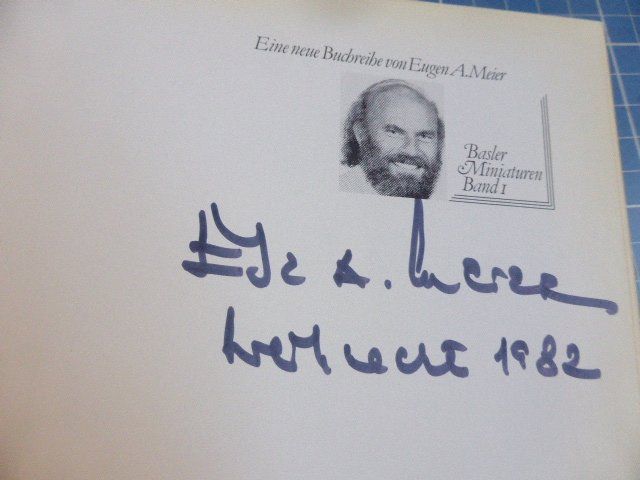 Eine neue Buchreihe von Eugen A. Meier
Basler
Miniaturen
Band 1
A. Meier
1982